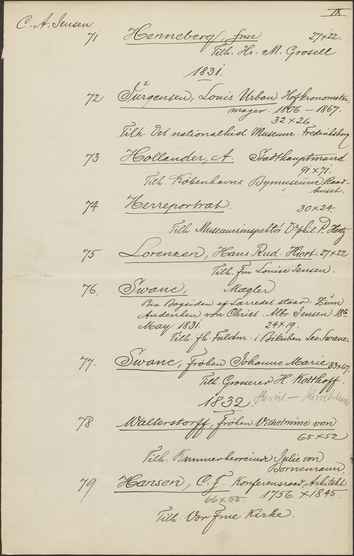 C. A. Jensen
IX
71 Henneberg, frue 27x22.
Tilh. Hr. M. Grosell
1831.
72 Jürgensen, Louis Urban Hofkronometer
mager 1806 – 1867.
32 x 26
Tilh. Det nationalhist Museum. Frederiksborg
73 Hollander, A. Stadthauptmand
91 x 71.
Tilh. Københavns Bymuseum, Raad-
huset.
74 Herreportræt 30 x 24
Tilh. Museumsinspektør Dr phil P.
75 Lorenzen, Hans Rud. Hiort. 27 x 22
Tilh. Fru Louise Jensen.
76 Swane, Mægler
Paa Bagsiden af Lærredet staar: Zum
Andenken von Christ. Albr Jensen 18
May 1831. 24 x 19.
Tilh. fh. Fuldm. i Bikuben Leo Swane.
77. Swane, frøken Johanne Marie
Tilh. Grosserer H. Kolthoff.
1832
78 Walterstorff, frøken Vilhelmine von
65 x 52
Tilh. Kammerherreinde Julie von
Bornemann
79 Hansen, C. F. Konferensraad, Arkitekt
66 x 55 1756 + 1845.
Tilh. Vor Frue Kirke.